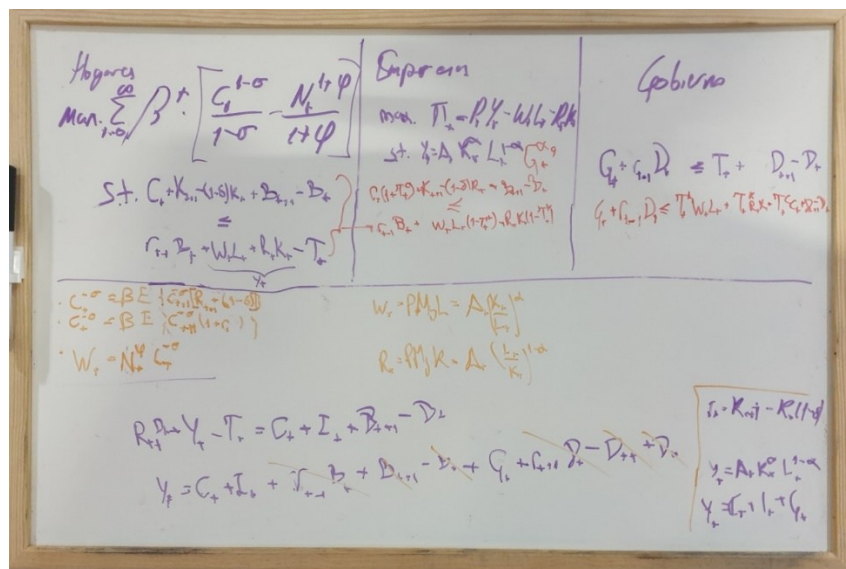 Hogares
Max. ∑_{t=0}^{∞} β^t · [ C_t^{1-σ}/(1-σ) - N_t^{1+φ}/(1+φ) ]
s.t. C_t + K_{t+1} - (1-δ)K_t + B_{t+1} - B_t
≤
r_{t-1} B_t + W_t L_t + R_t K_t - T_t
Y_t
Empresas
max. Π_t = P_t Y_t - W_t L_t - R_t K_t
st. Y_t = A_t K_t^α L_t^{1-α} G_t^{α_g}
C_t(1+τ_t^c) + K_{t+1} - (1-δ)K_t + B_{t+1} - B_t
≤
r_{t-1} B_t + W_t L_t (1-τ_t^w) + R_t K_t (1-τ_t^k)
Gobierno
G_t + r_{t-1} D_t ≤ T_t + D_{t+1} - D_t
G_t + r_{t-1} D_t ≤ τ_t^w W_t L_t + τ_t^k R_t K_t + τ_t^c C_t + D_{t+1} - D_t
· C_t^{-σ} = β E { C_{t+1}^{-σ} [R_{t+1} + (1-δ)] }
· C_t^{-σ} = β E { C_{t+1}^{-σ} (1+r_t) }
· W_t = N_t^φ C_t^σ
W_t = PMgL = A_t (K_t/L_t)^α
R_t = PMgK = A_t (L_t/K_t)^{1-α}
Y_t - T_t = C_t + I_t + B_{t+1} - B_t
Y_t = C_t + I_t + r_{t-1} B_t + B_{t+1} - B_t + G_t + r_{t-1} D_t - D_{t+1} + D_t
I_t = K_{t+1} - K_t(1-δ)
Y_t = A_t K_t^α L_t^{1-α}
Y_t = C_t + I_t + G_t